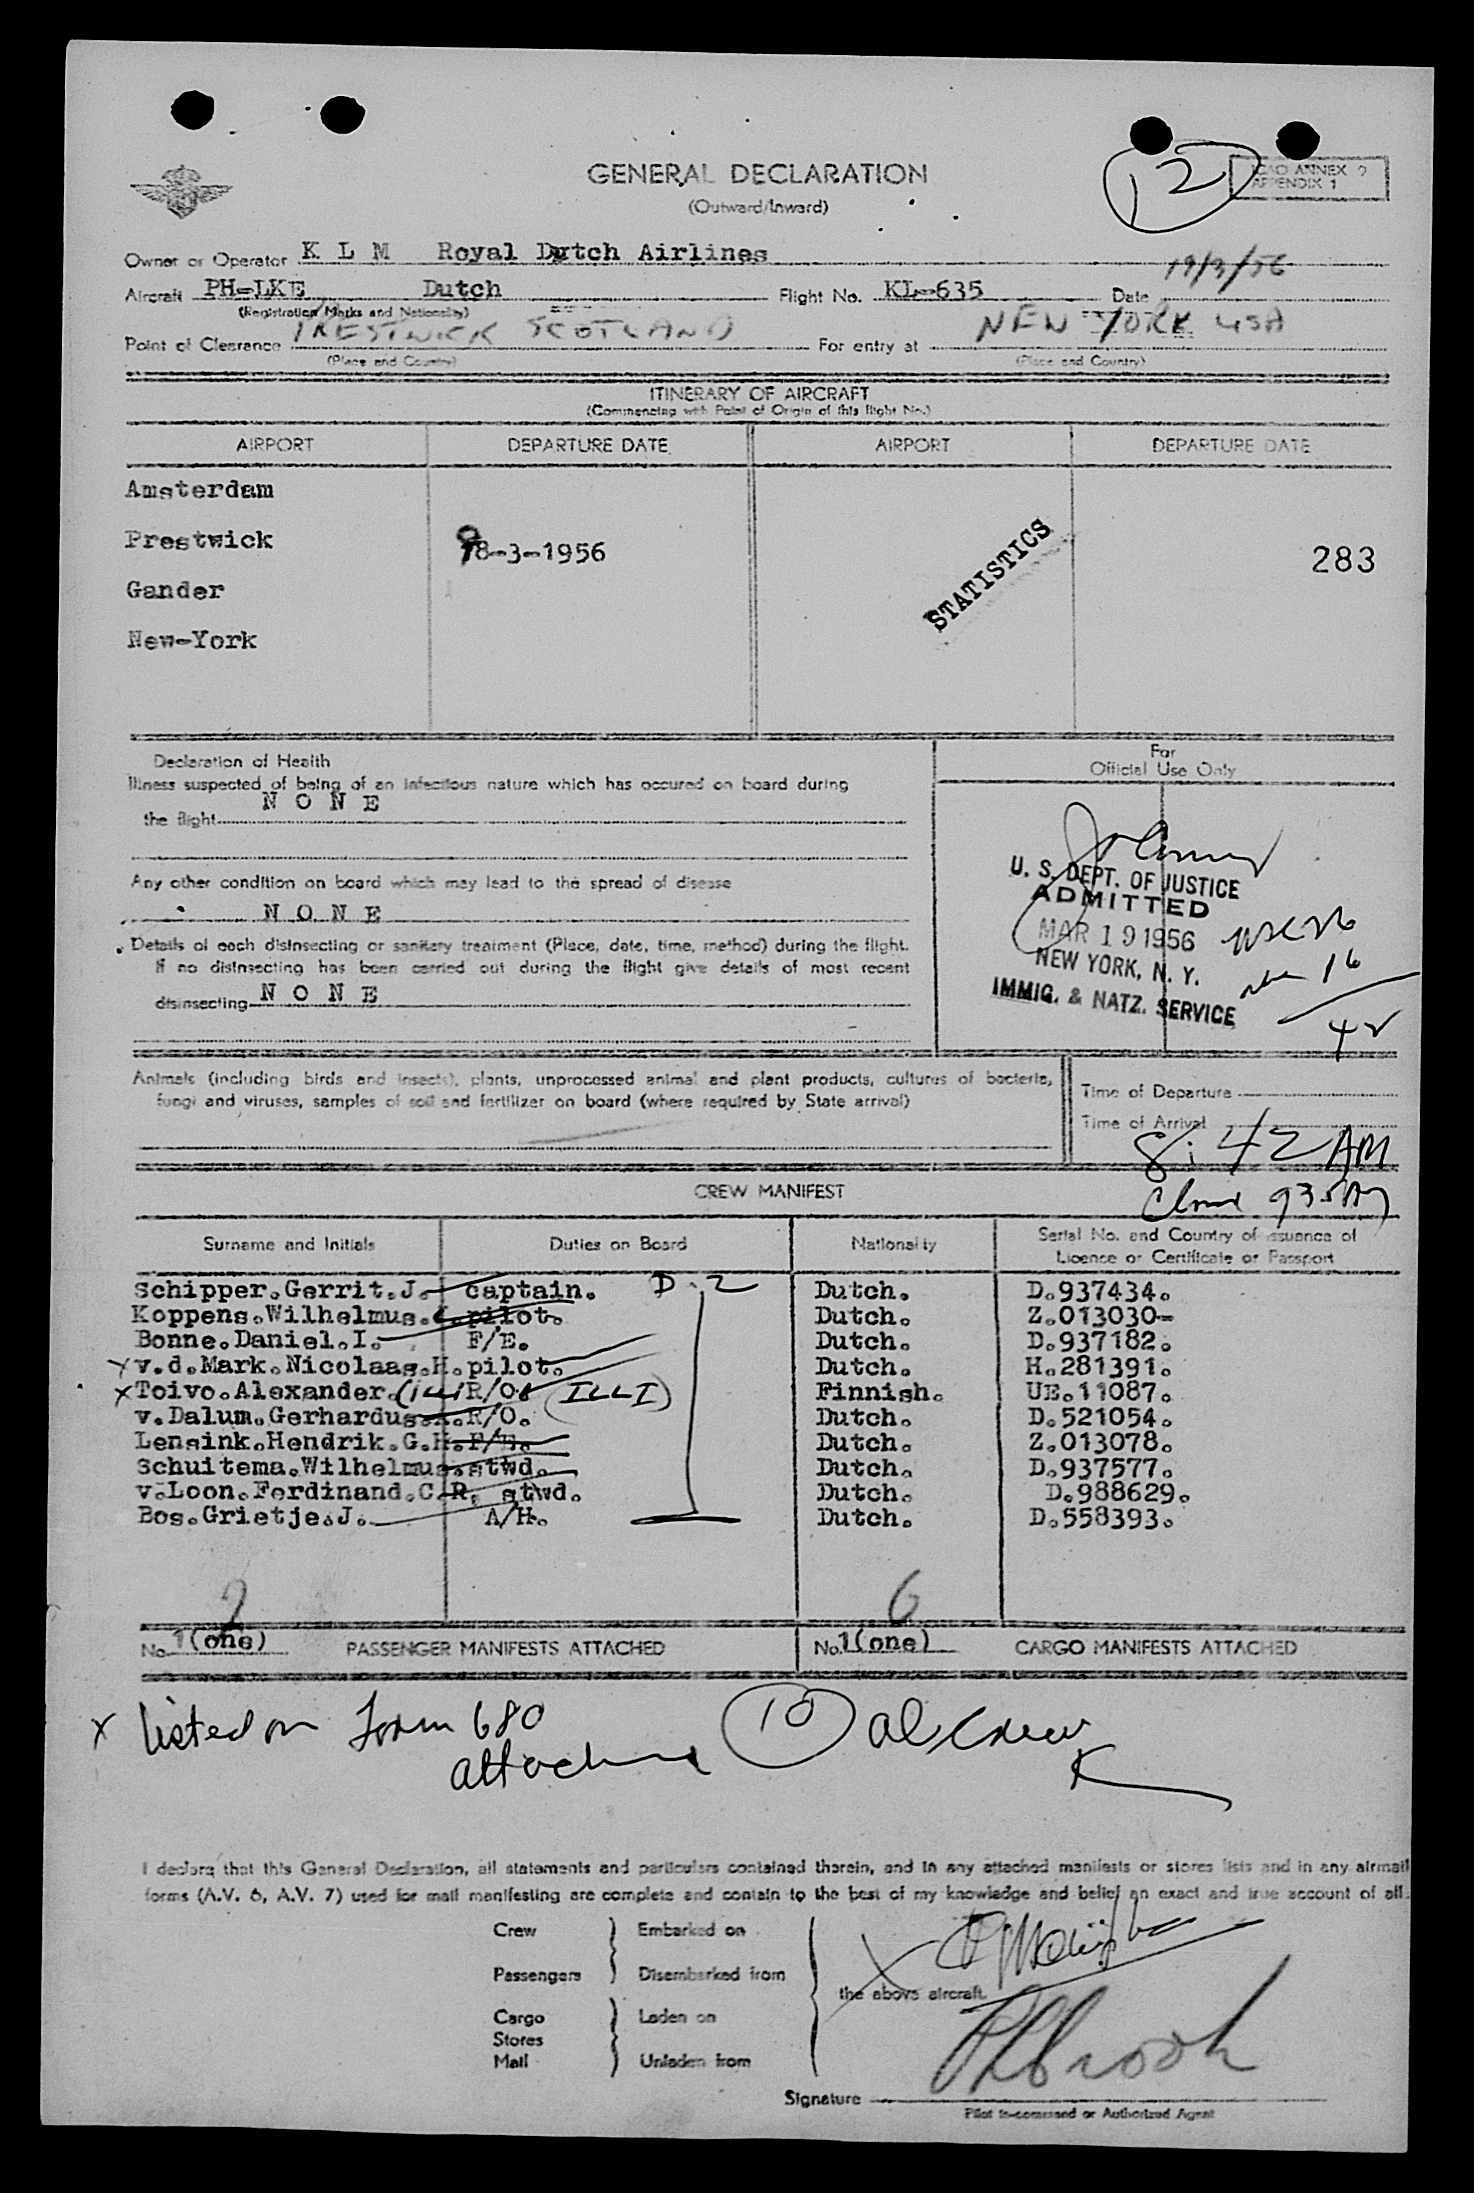 GENERAL DECLARATION
(Outward/Inward)
12
ICAO ANNEX 9
APPENDIX 1
Owner or Operator K L M Royal Dutch Airlines
19/3/56
Aircraft PH-LKE Dutch Flight No. KL-635 Date
(Registration Marks and Nationality)
Point of Clearance PRESTWICK SCOTLAND For entry at NEW YORK USA
(Place and Country) (Place and Country)
ITINERARY OF AIRCRAFT
(Commencing with Point of Origin of this flight No.)
AIRPORT DEPARTURE DATE AIRPORT DEPARTURE DATE
Amsterdam
Prestwick 18-3-1956 STATISTICS 283
Gander
New-York
Declaration of Health
Illness suspected of being of an infectious nature which has occured on board during
the flight N O N E
Any other condition on board which may lead to the spread of disease
N O N E
Details of each disinsecting or sanitary treatment (Place, date, time, method) during the flight.
If no disinsecting has been carried out during the flight give details of most recent
disinsecting N O N E
For
Official Use Only
U. S. DEPT. OF JUSTICE
ADMITTED
MAR 19 1956
NEW YORK, N. Y.
IMMIG. & NATZ. SERVICE
16
42
Animals (including birds and insects), plants, unprocessed animal and plant products, cultures of bacteria,
fungi and viruses, samples of soil and fertilizer on board (where required by State arrival)
Time of Departure
Time of Arrival
8:42 AM
935 AM
CREW MANIFEST
Surname and Initials Duties on Board Nationality Serial No. and Country of issuance of
Licence or Certificate or Passport
Schipper.Gerrit.J. captain. D-2 Dutch. D.937434.
Koppens.Wilhelmus. pilot. Dutch. Z.013030-
Bonne.Daniel.I. F/E. Dutch. D.937182.
x v.d.Mark.Nicolaas.H.pilot. Dutch. H.281391.
x Toivo.Alexander. R/O. (ILLI) Finnish. UE.11087.
v.Dalum.Gerhardus. R/O. Dutch. D.521054.
Lensink.Hendrik.G.H.F/E. Dutch. Z.013078.
Schuitema.Wilhelmus.stwd. Dutch. D.937577.
v.Loon.Ferdinand.C.R. stwd. Dutch. D.988629.
Bos.Grietje.J. A/H. Dutch. D.558393.
2 6
No 1(one) PASSENGER MANIFESTS ATTACHED No.1(one) CARGO MANIFESTS ATTACHED
x listed on Form 680
attached
10 al crew
I declare that this General Declaration, all statements and particulars contained therein, and in any attached manifests or stores lists and in any airmail
forms (A.V. 6, A.V. 7) used for mail manifesting are complete and contain to the best of my knowledge and belief an exact and true account of all.
Crew Embarked on
Passengers Disembarked from
the above aircraft.
Cargo Laden on
Stores
Mail Unladen from
Signature
Pilot in-command or Authorized Agent